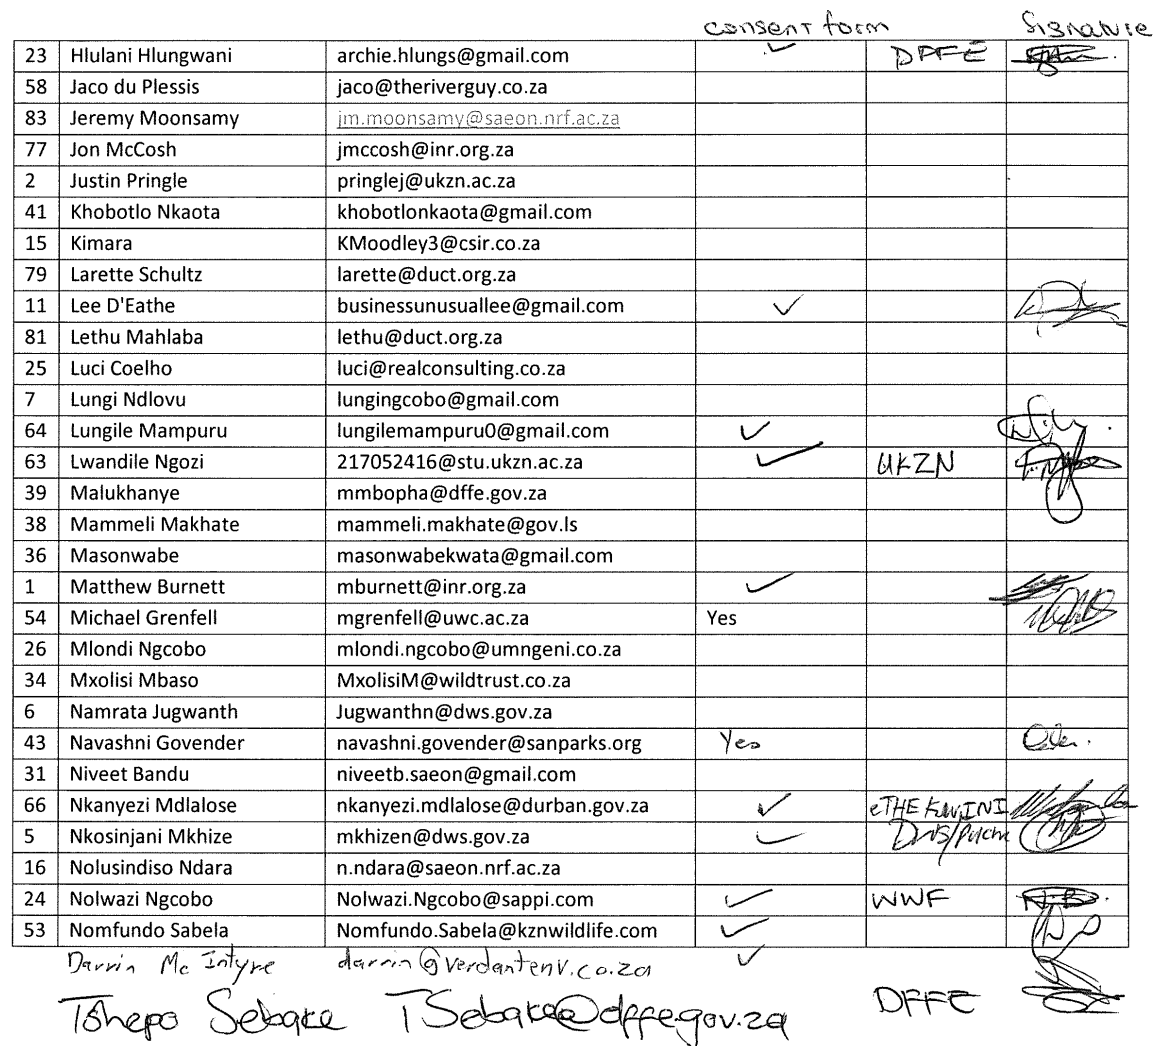 consent form Signature
23 Hlulani Hlungwani archie.hlungs@gmail.com ✓ DFFE
58 Jaco du Plessis jaco@theriverguy.co.za
83 Jeremy Moonsamy jm.moonsamy@saeon.nrf.ac.za
77 Jon McCosh jmccosh@inr.org.za
2 Justin Pringle pringlej@ukzn.ac.za
41 Khobotlo Nkaota khobotlonkaota@gmail.com
15 Kimara KMoodley3@csir.co.za
79 Larette Schultz larette@duct.org.za
11 Lee D'Eathe businessunusuallee@gmail.com ✓
81 Lethu Mahlaba lethu@duct.org.za
25 Luci Coelho luci@realconsulting.co.za
7 Lungi Ndlovu lungingcobo@gmail.com
64 Lungile Mampuru lungilemampuru0@gmail.com ✓
63 Lwandile Ngozi 217052416@stu.ukzn.ac.za ✓ UKZN
39 Malukhanye mmbopha@dffe.gov.za
38 Mammeli Makhate mammeli.makhate@gov.ls
36 Masonwabe masonwabekwata@gmail.com
1 Matthew Burnett mburnett@inr.org.za ✓
54 Michael Grenfell mgrenfell@uwc.ac.za Yes
26 Mlondi Ngcobo mlondi.ngcobo@umngeni.co.za
34 Mxolisi Mbaso MxolisiM@wildtrust.co.za
6 Namrata Jugwanth Jugwanthn@dws.gov.za
43 Navashni Govender navashni.govender@sanparks.org Yes
31 Niveet Bandu niveetb.saeon@gmail.com
66 Nkanyezi Mdlalose nkanyezi.mdlalose@durban.gov.za ✓ eTHEKWINI
5 Nkosinjani Mkhize mkhizen@dws.gov.za ✓ DWS/
16 Nolusindiso Ndara n.ndara@saeon.nrf.ac.za
24 Nolwazi Ngcobo Nolwazi.Ngcobo@sappi.com ✓ WWF
53 Nomfundo Sabela Nomfundo.Sabela@kznwildlife.com ✓
Darrin Mc Intyre darrin@verdantenv.co.za ✓
Tshepo Sebake TSebake@dffe.gov.za DFFE